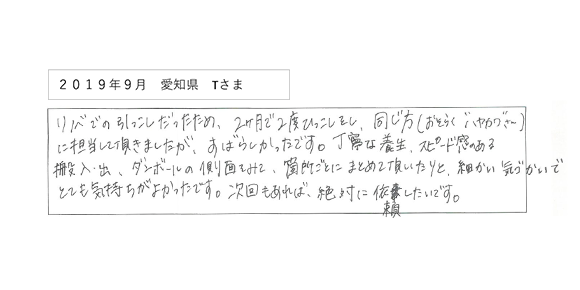 2019年9月 愛知県 Tさま
リノベでの引っこしだったため、2ヶ月で2度ひっこしをし、同じ方(おそらく"ハヤカワ"さん)
に担当して頂きましたが、すばらしかったです。丁寧な養生、スピード感のある
搬入・出、ダンボールの側面をみて、箇所ごとにまとめて頂いたりと、細かい気づかいで
とても気持ちがよかったです。次回もあれば、絶対に依頼したいです。